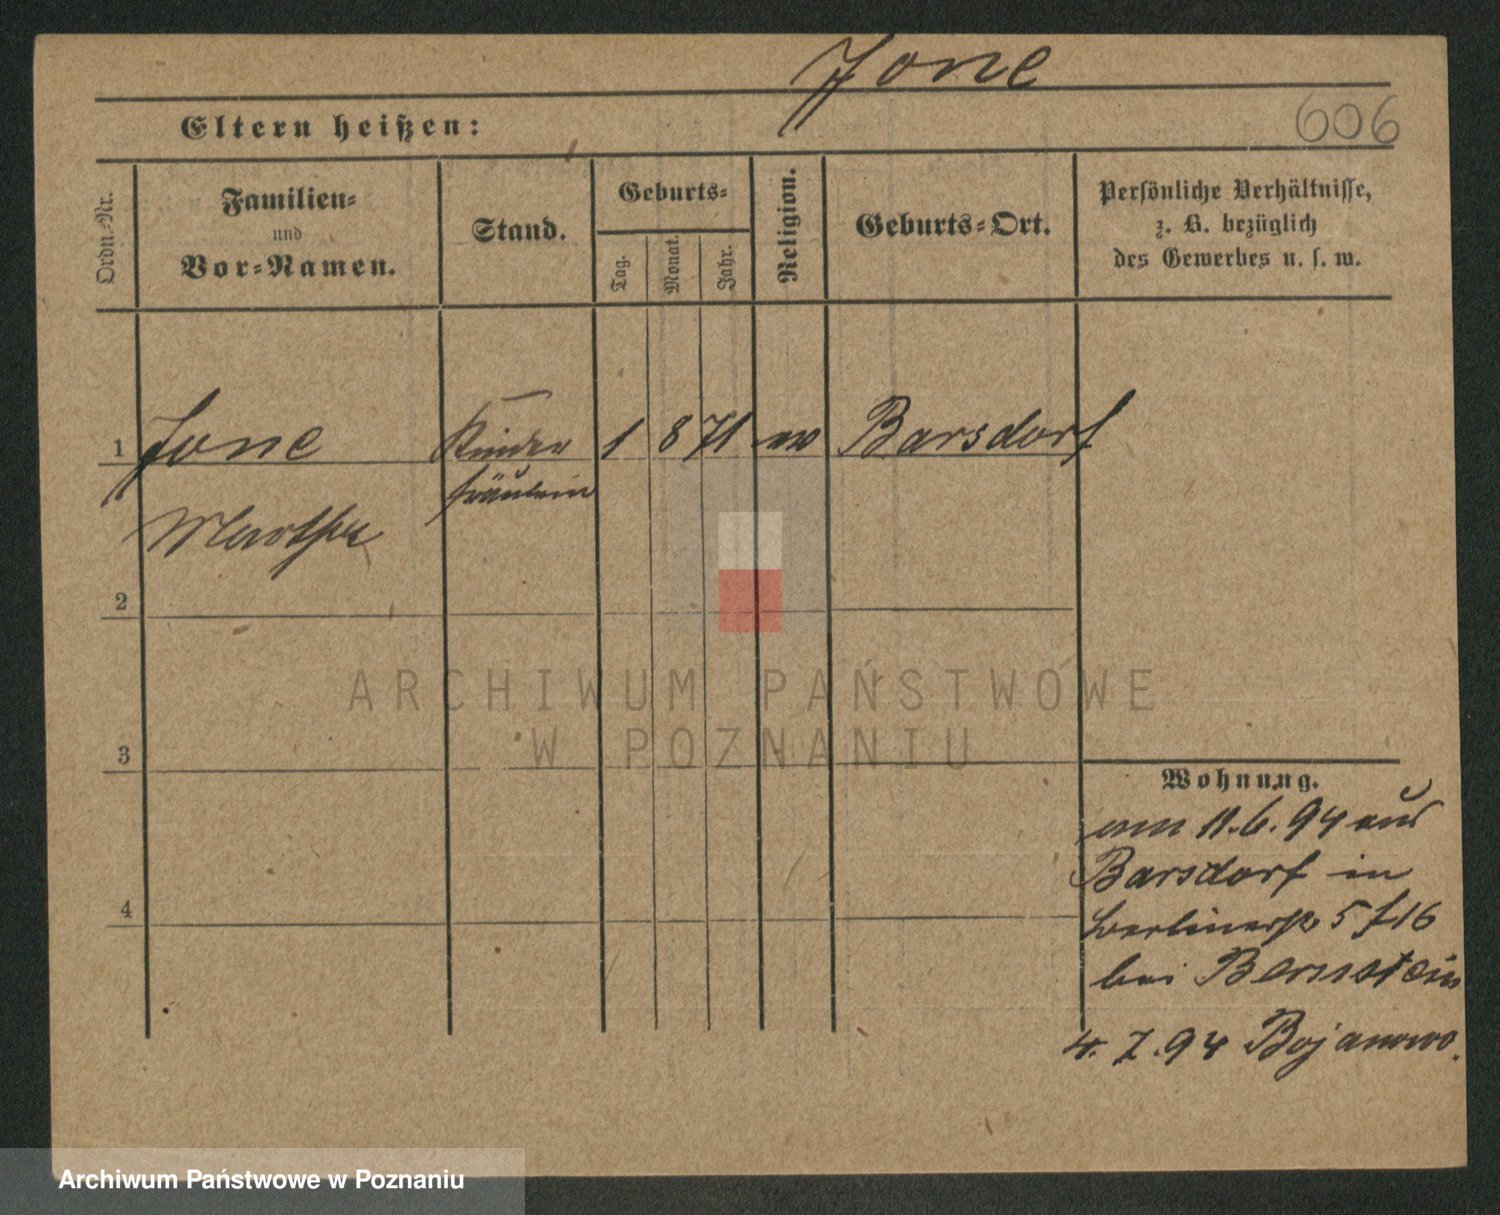 Jone
606
Eltern heißen:
Ordn.-Nr.
Familien-
und
Vor-Namen.
Stand.
Geburts-
Tag.
Monat.
Jahr.
Religion.
Geburts-Ort.
Persönliche Verhältnisse,
z. B. bezüglich
des Gewerbes u. s. w.
1 Jone Kinder 1 8 71 ev Barsdorf
fräulein
Martha
2
3
4
Wohnung.
am 11.6.94 aus
Barsdorf in
Berlinerstr 5 16
bei Bernstein
4.7.94 Bojanowo.
ARCHIWUM PAŃSTWOWE
W POZNANIU
Archiwum Państwowe w Poznaniu